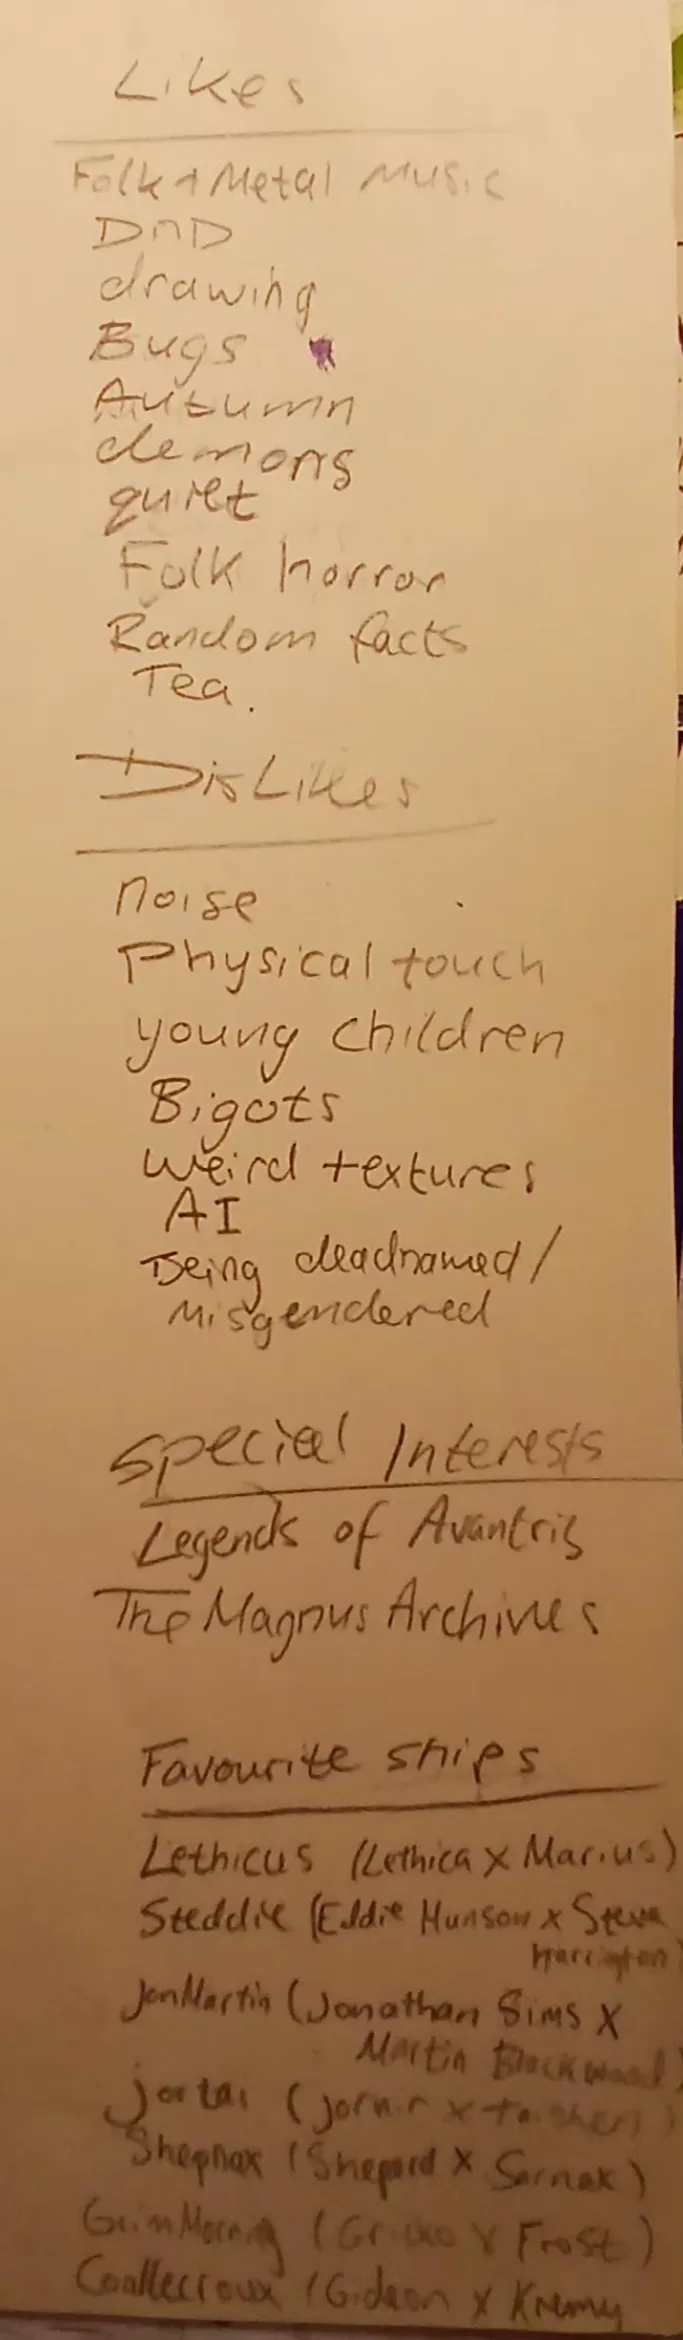 Likes
Folk + Metal Music
DnD
drawing
Bugs
Autumn
demons
quiet
Folk horror
Random facts
Tea.
DisLikes
noise
Physical touch
young children
Bigots
weird textures
AI
Being deadnamed/
Misgendered
Special Interests
Legends of Avantris
The Magnus Archives
Favourite ships
Lethicus (Lethica x Marius)
Steddie (Eddie Munson x Steve
Harrington)
JonMartin (Jonathan Sims x
Martin Blackwood)
Jortai (Jornir x
(Shepard x
(Gricko x Frost)
(Gideon x Kremy